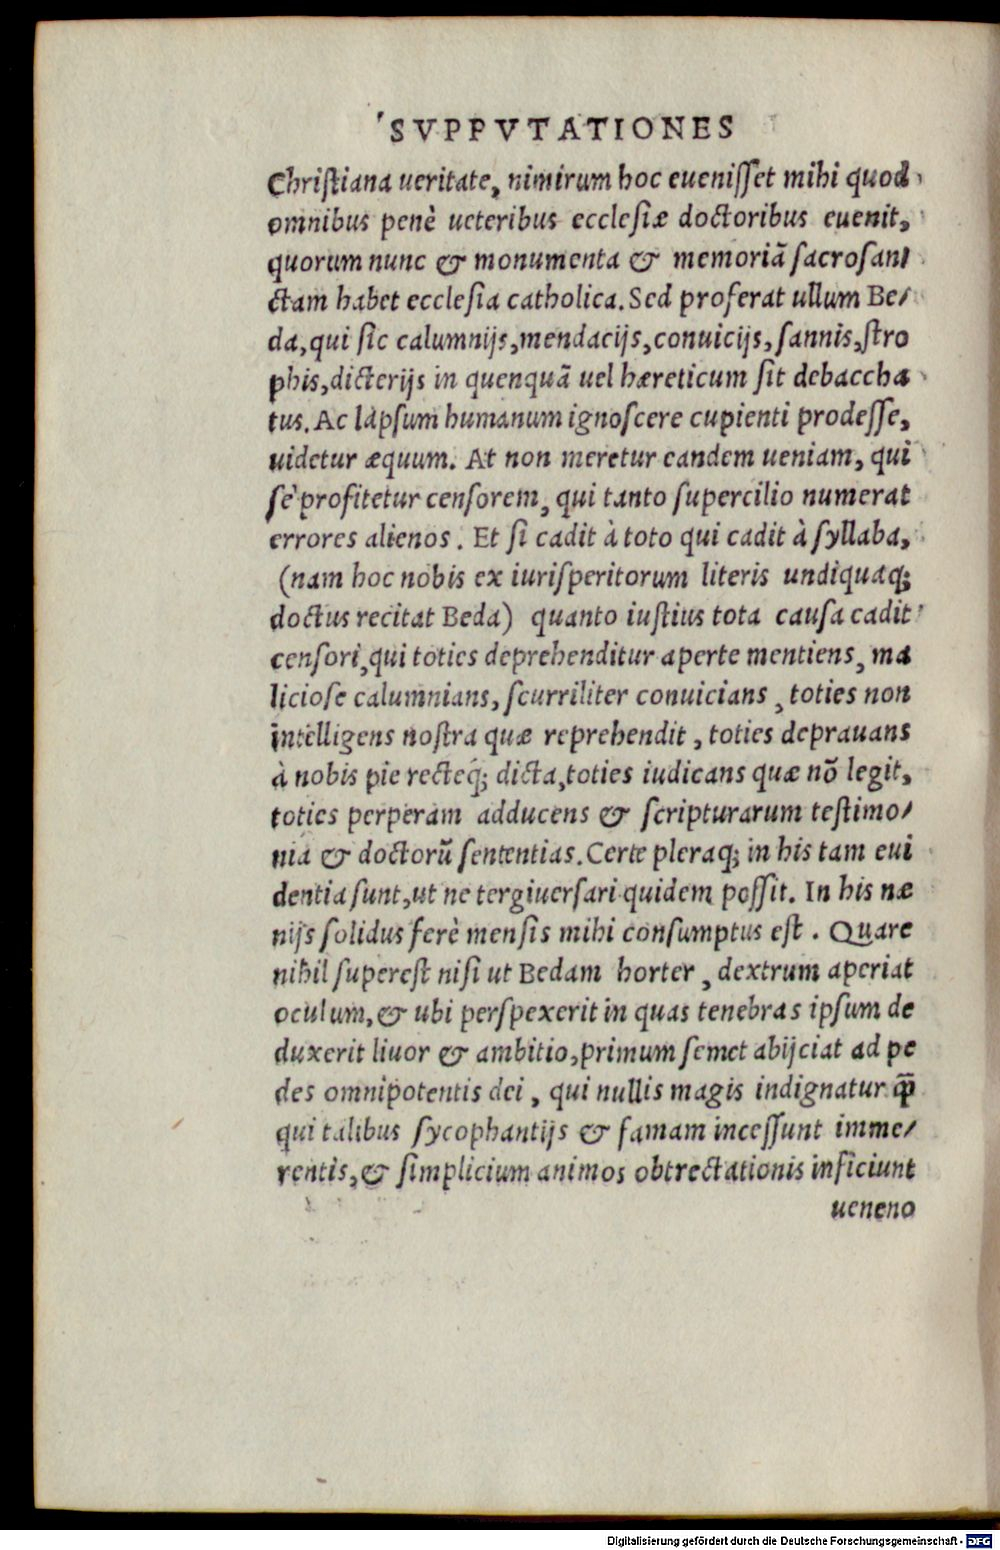 SVPPVTATIONES
Christiana ueritate, nimirum hoc euenisset mihi quod
omnibus penè ueteribus ecclesiæ doctoribus euenit,
quorum nunc & monumenta & memoriã sacrosan/
ctam habet ecclesia catholica. Sed proferat ullum Be/
da, qui sic calumnijs, mendacijs, conuicijs, sannis, stro
phis, dicterijs in quenquã uel hæreticum sit debaccha
tus. Ac lapsum humanum ignoscere cupienti prodesse,
uidetur æquum. At non meretur eandem ueniam, qui
se profitetur censorem, qui tanto supercilio numerat
errores alienos. Et si cadit à toto qui cadit à syllaba,
(nam hoc nobis ex iurisperitorum literis undiquaq;
doctus recitat Beda) quanto iustius tota causa cadit
censori, qui toties deprehenditur aperte mentiens, ma
liciose calumnians, scurriliter conuicians, toties non
intelligens nostra quæ reprehendit, toties deprauans
à nobis pie recteq́; dicta, toties iudicans quæ nõ legit,
toties perperam adducens & scripturarum testimo/
nia & doctorũ sententias. Certe pleraq; in his tam eui
dentia sunt, ut ne tergiuersari quidem possit. In his næ
nijs solidus ferè mensis mihi consumptus est. Quare
nihil superest nisi ut Bedam horter, dextrum aperiat
oculum, & ubi perspexerit in quas tenebras ipsum de
duxerit liuor & ambitio, primum semet abijciat ad pe
des omnipotentis dei, qui nullis magis indignatur q̃
qui talibus sycophantijs & famam incessunt imme/
rentis, & simplicium animos obtrectationis inficiunt
ueneno
Digitalisierung gefördert durch die Deutsche Forschungsgemeinschaft - DFG